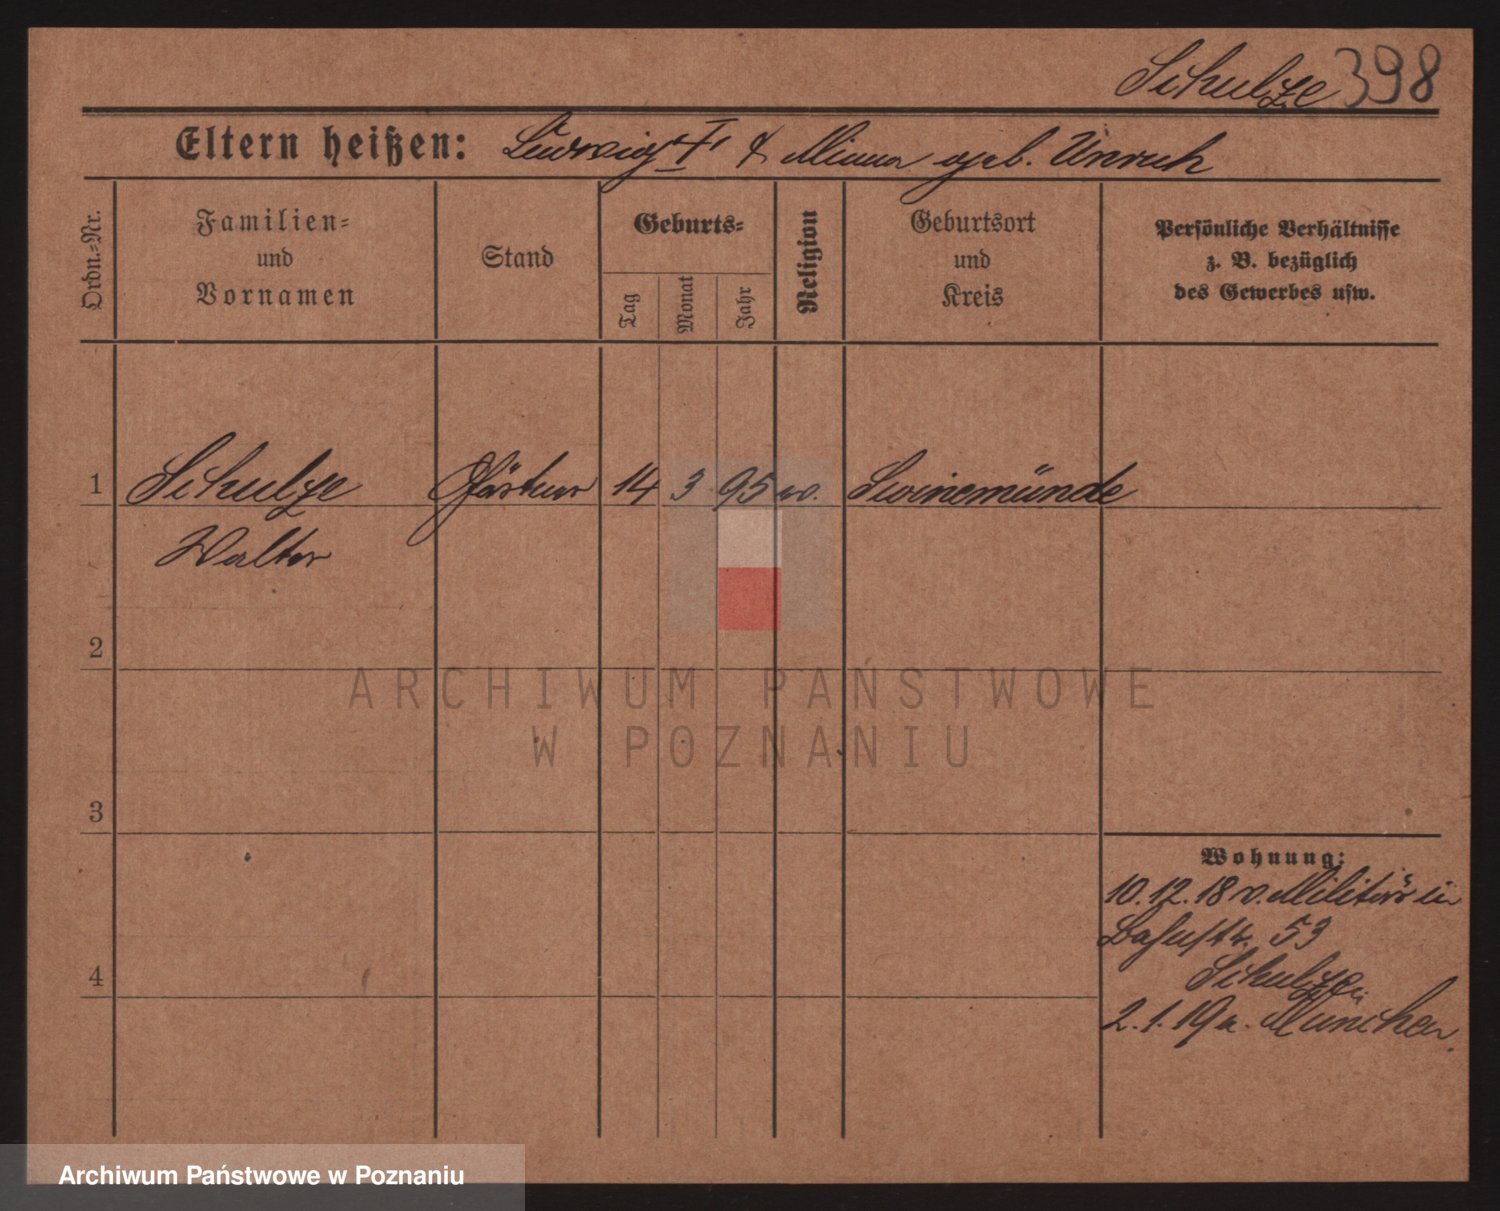 Schulze 398
Eltern heißen: Ludwig † & Minna geb. Unruh
Ordn.-Nr.
Familien-
und
Vornamen
Stand
Geburts-
Tag
Monat
Jahr
Religion
Geburtsort
und
Kreis
Persönliche Verhältnisse
z. B. bezüglich
des Gewerbes usw.
1 Schulze Gärtner 14 3 95 ev. Swinemünde
Walter
2
3
4
Wohnung:
10.12.18 v. Militär in
Bahnstr. 53
Schulze
2.1.19 n. München
ARCHIWUM PAŃSTWOWE
W POZNANIU
Archiwum Państwowe w Poznaniu